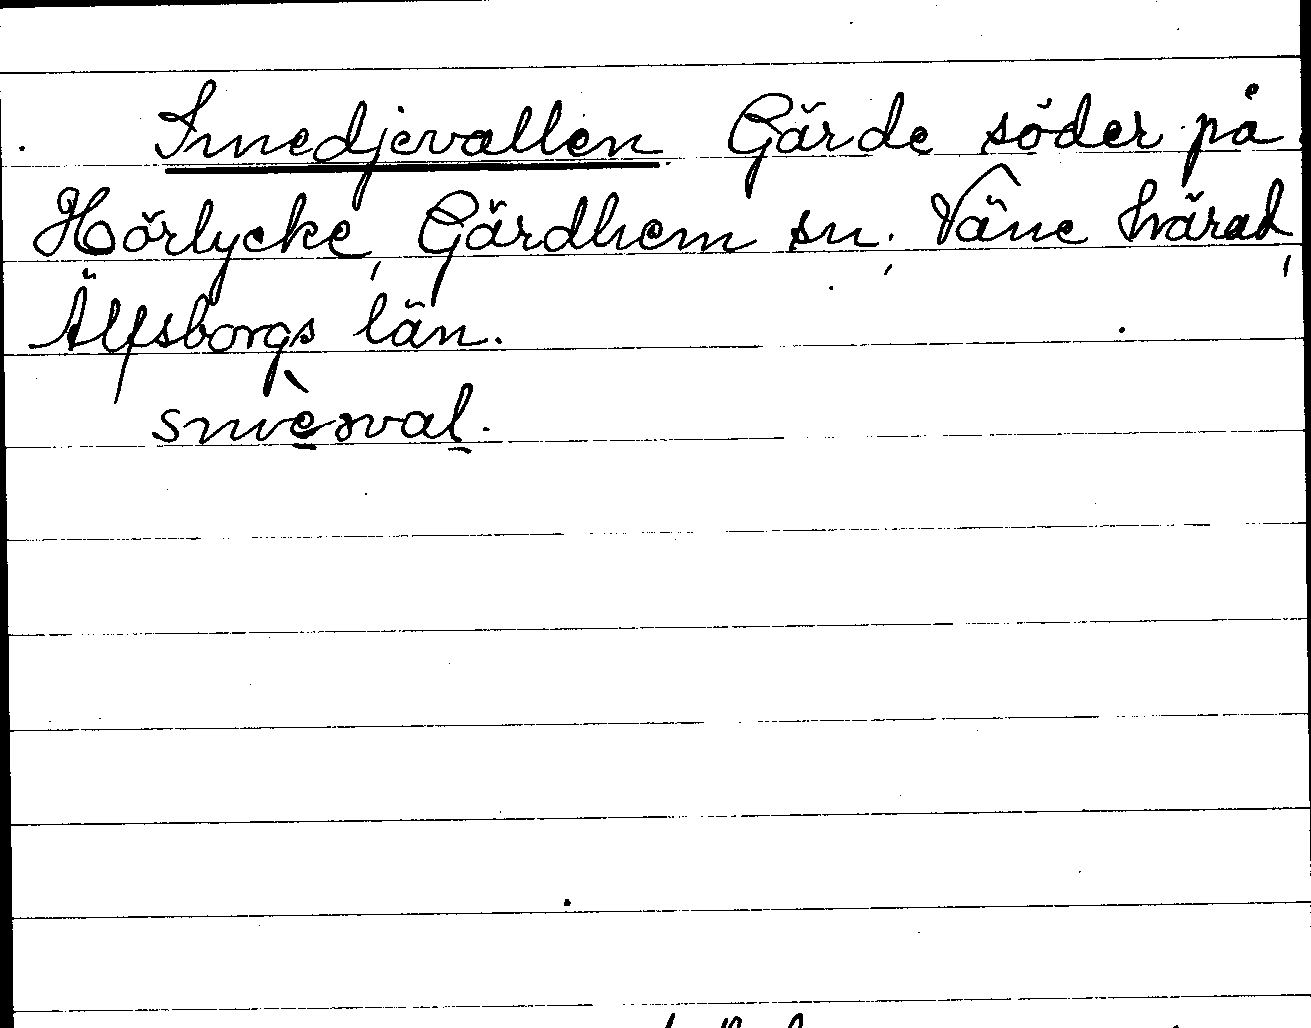 Smedjevallen. Gärde söder på
Hörlycke, Gärdhem sn. Väne härad,
Älfsborgs län.